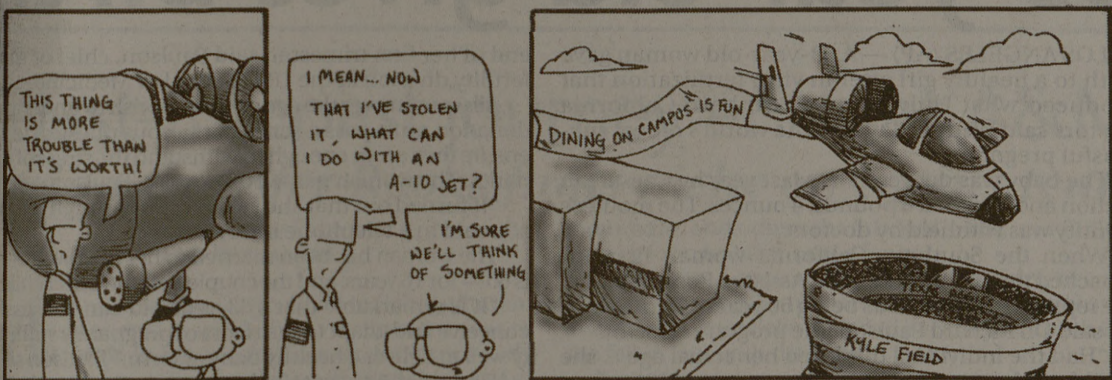 THIS THING
IS MORE
TROUBLE THAN
IT'S WORTH!
I MEAN... NOW
THAT I'VE STOLEN
IT, WHAT CAN
I DO WITH AN
A-10 JET?
I'M SURE
WE'LL THINK
OF SOMETHING
DINING ON CAMPUS IS FUN
TEXAS AGGIES
KYLE FIELD